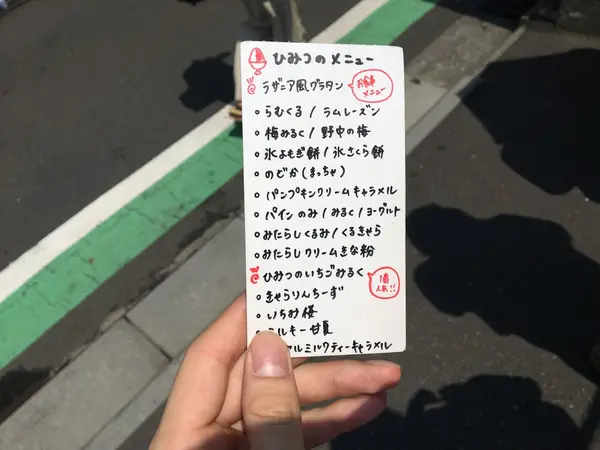 ひみつのメニュー
ラザニア風グラタン
お食事
メニュー
らむくる / ラムレーズン
梅みるく / 野中の梅
氷よもぎ餅 / 氷さくら餅
のどか(まっちゃ)
パンプキンクリームキャラメル
パインのみ / みるく / ヨーグルト
みたらしくるみ / くるきゃら
みたらしクリームきな粉
ひみつのいちごみるく
1番
人気!!
きゃらりんちーず
いちみ桜
ミルキー甘夏
ルミルクティーキャラメル